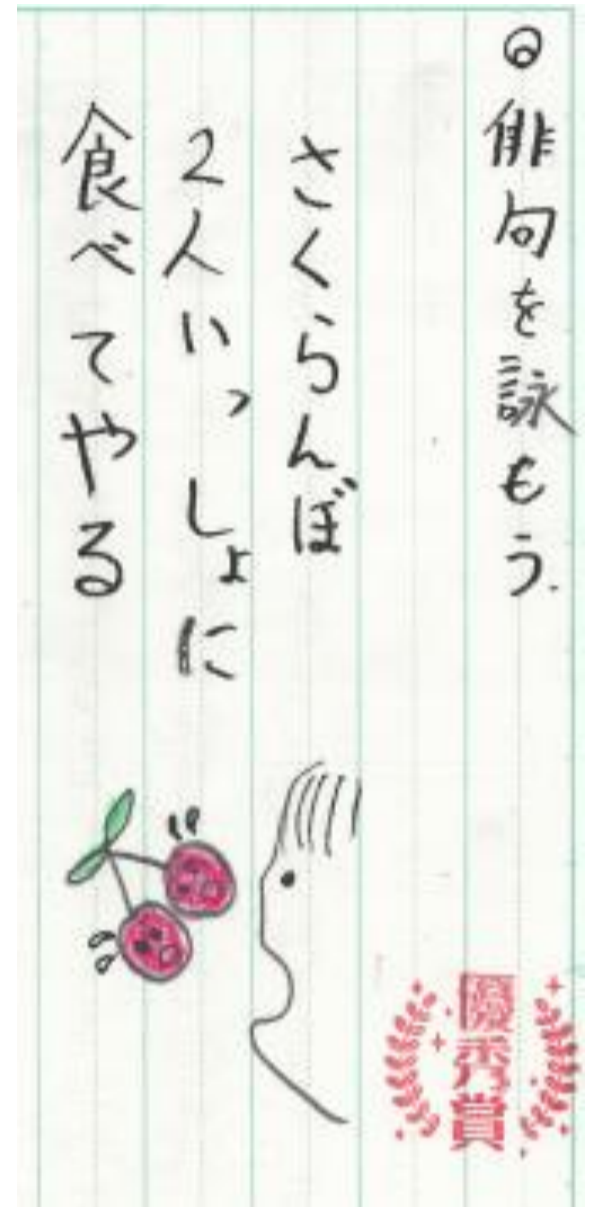 ◎俳句を詠もう.
さくらんぼ
2人いっしょに
食べてやる
優秀賞